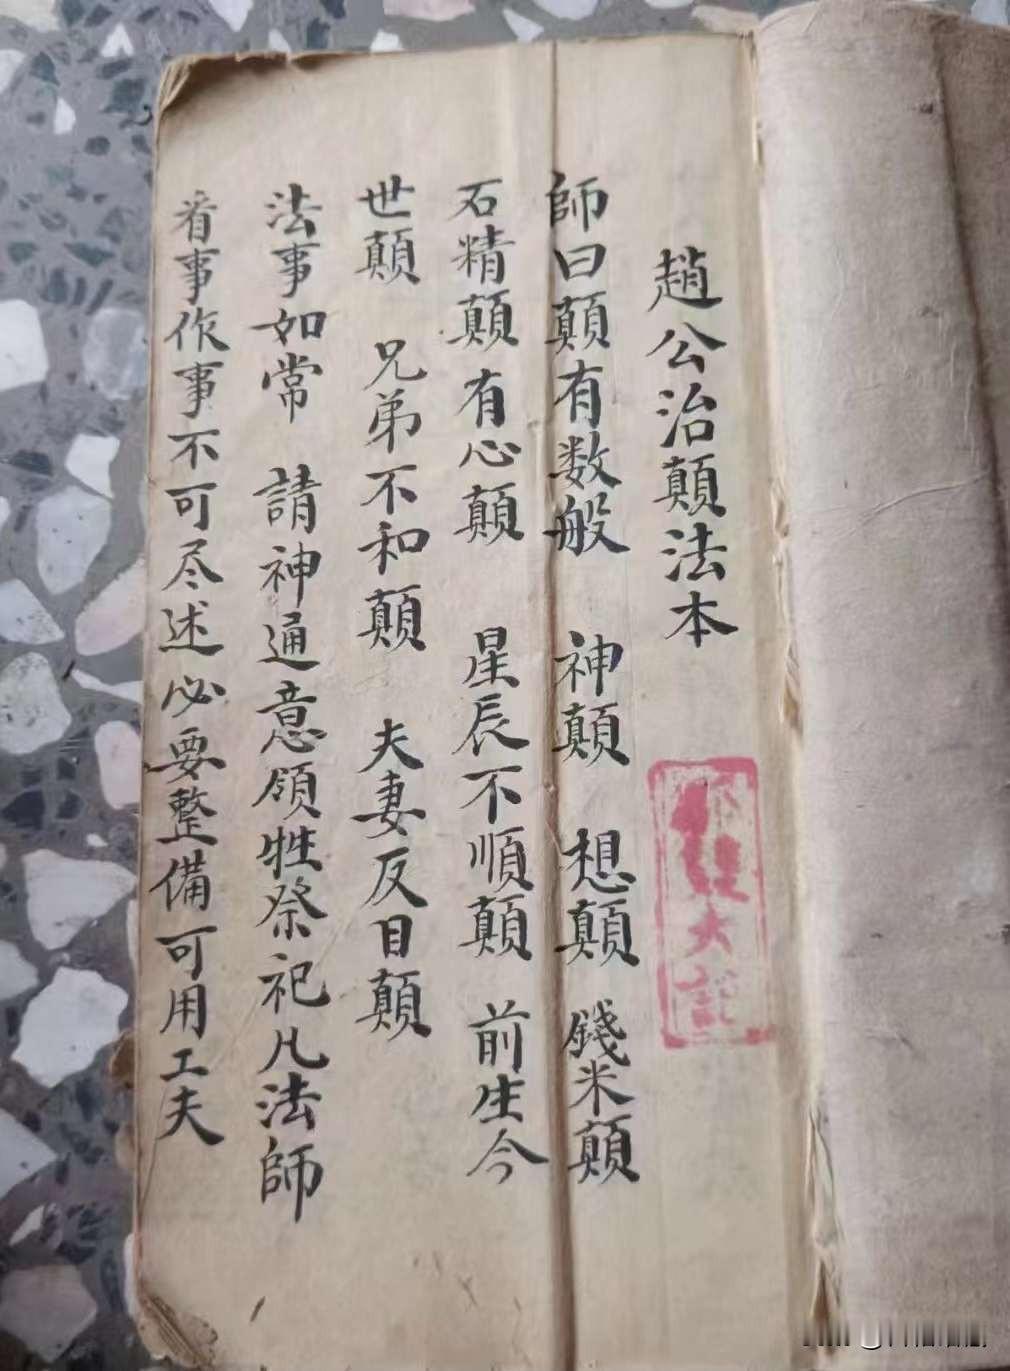 趙公治顛法本
師曰顛有数般 神顛 想顛 錢米顛
石精顛有心顛 星辰不順顛 前生今
世顛 兄弟不和顛 夫妻反目顛
法事如常 請神通意領牲祭祀凡法師
看事作事不可尽述必要整備可用工夫
大記